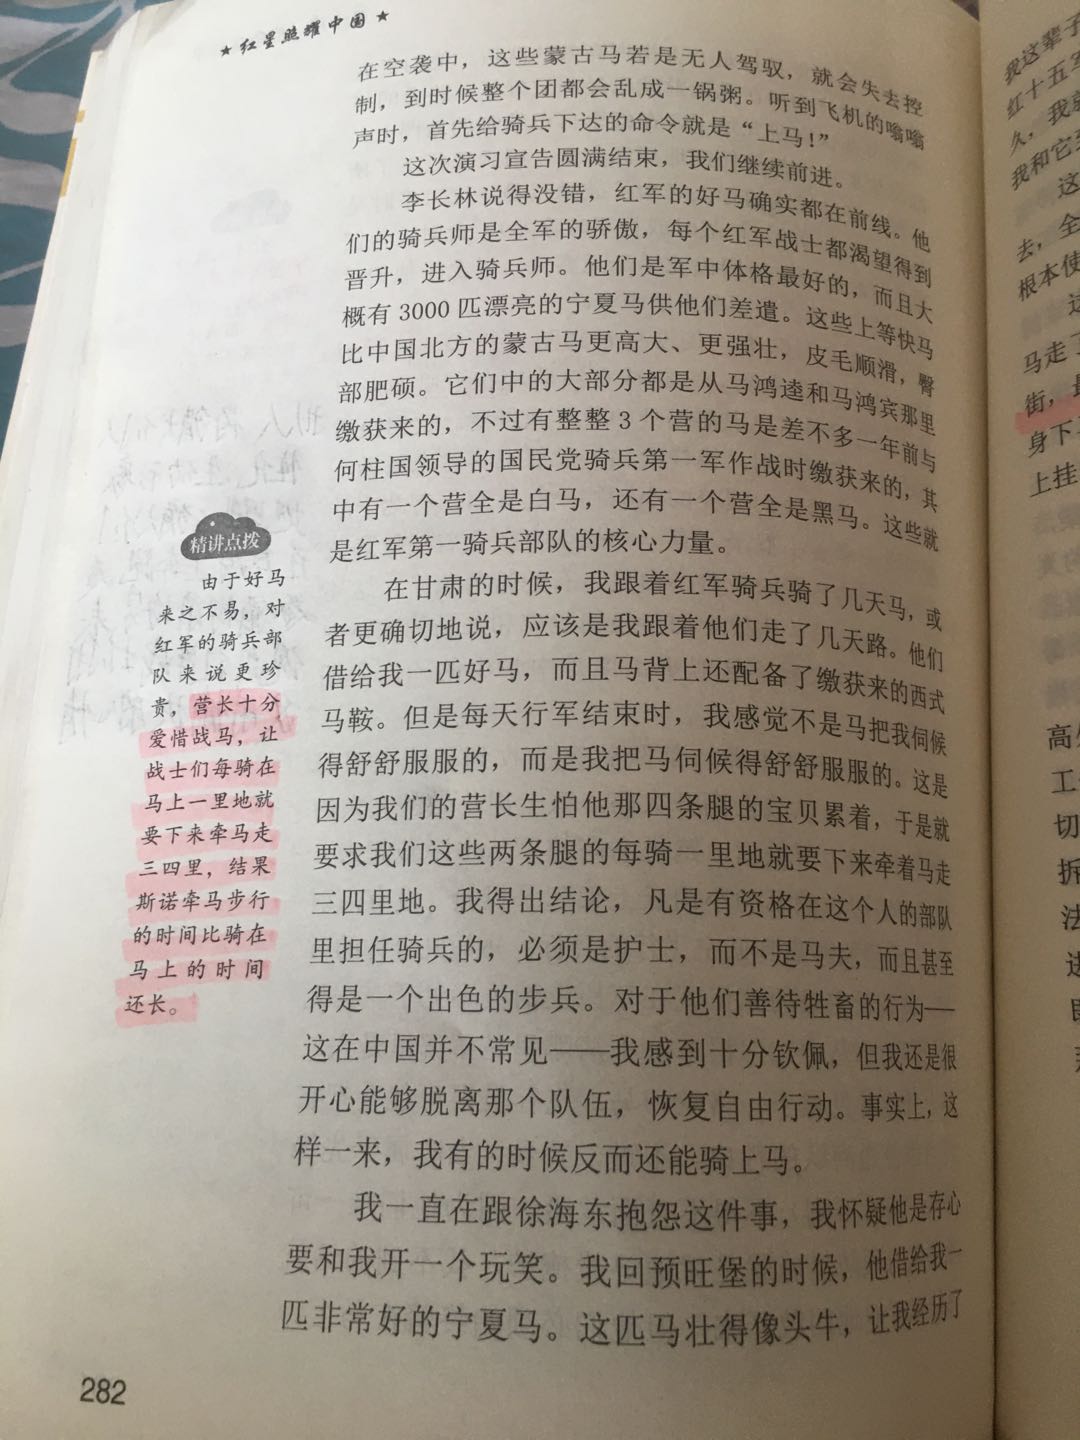 ★红星照耀中国★
在空袭中，这些蒙古马若是无人驾驭，就会失去控
制，到时候整个团都会乱成一锅粥。听到飞机的嗡嗡
声时，首先给骑兵下达的命令就是“上马！”
这次演习宣告圆满结束，我们继续前进。
李长林说得没错，红军的好马确实都在前线。他
们的骑兵师是全军的骄傲，每个红军战士都渴望得到
晋升，进入骑兵师。他们是军中体格最好的，而且大
概有3000匹漂亮的宁夏马供他们差遣。这些上等快马
比中国北方的蒙古马更高大、更强壮，皮毛顺滑，臀
部肥硕。它们中的大部分都是从马鸿逵和马鸿宾那里
缴获来的，不过有整整3个营的马是差不多一年前与
何柱国领导的国民党骑兵第一军作战时缴获来的，其
中有一个营全是白马，还有一个营全是黑马。这些就
是红军第一骑兵部队的核心力量。
在甘肃的时候，我跟着红军骑兵骑了几天马，或
者更确切地说，应该是我跟着他们走了几天路。他们
借给我一匹好马，而且马背上还配备了缴获来的西式
马鞍。但是每天行军结束时，我感觉不是马把我伺候
得舒舒服服的，而是我把马伺候得舒舒服服的。这是
因为我们的营长生怕他那四条腿的宝贝累着，于是就
要求我们这些两条腿的每骑一里地就要下来牵着马走
三四里地。我得出结论，凡是有资格在这个人的部队
里担任骑兵的，必须是护士，而不是马夫，而且甚至
得是一个出色的步兵。对于他们善待牲畜的行为——
这在中国并不常见——我感到十分钦佩，但我还是很
开心能够脱离那个队伍，恢复自由行动。事实上，这
样一来，我有的时候反而还能骑上马。
我一直在跟徐海东抱怨这件事，我怀疑他是存心
要和我开一个玩笑。我回预旺堡的时候，他借给我一
匹非常好的宁夏马。这匹马壮得像头牛，让我经历了
精讲点拨
由于好马
来之不易，对
红军的骑兵部
队来说更珍
贵，营长十分
爱惜战马，让
战士们每骑在
马上一里地就
要下来牵马走
三四里，结果
斯诺牵马步行
的时间比骑在
马上的时间
还长。
282
我这辈子
红十五军
久，我就
我和它
这
去，全
根本使
马走了
街，
身下
上挂
高
工
切
拆
法
进